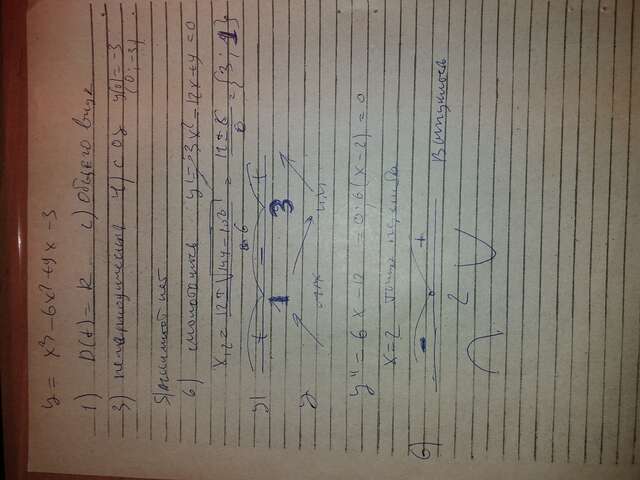 y = x³ - 6x² + 9x - 3
1) D(f) = R 2) Общего вида
3) непериодическая 4) с Oy y(0) = -3
(0; -3)
5) асимптот нет
6) монотонность y' = 3x² - 12x + 9 = 0
x₁,₂ = (12 ± √(144 - 108))/6 = (12 ± 6)/6 = {3; 1}
y' + - +
1 3
y max min
y'' = 6x - 12 = 0; 6(x - 2) = 0
x = 2 точка перегиба
6) - + Выпуклость
2